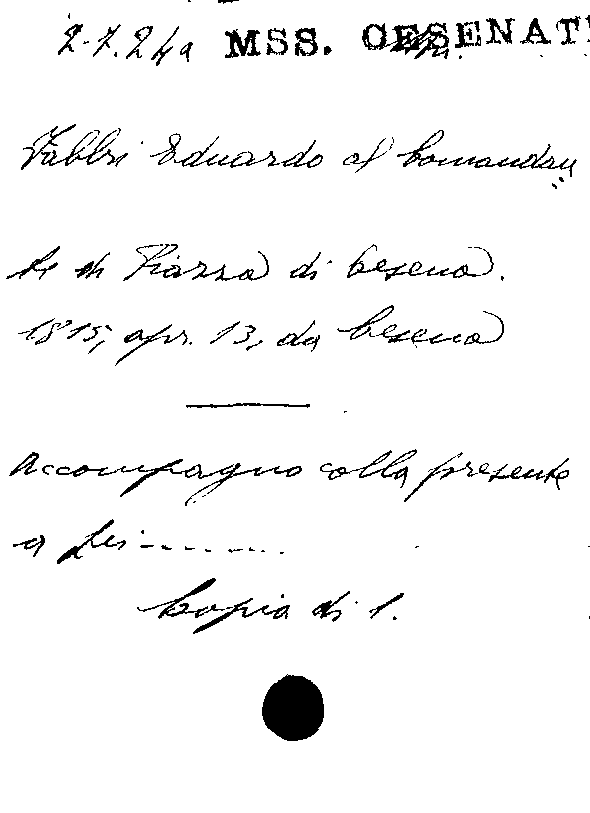 2.7.24a MSS. CESENAT
Fabbri Eduardo al Comandan
te di Piazza di Cesena.
1815, apr. 13, da Cesena
Accompagno colla presente
a Lei.........
Copia di l.